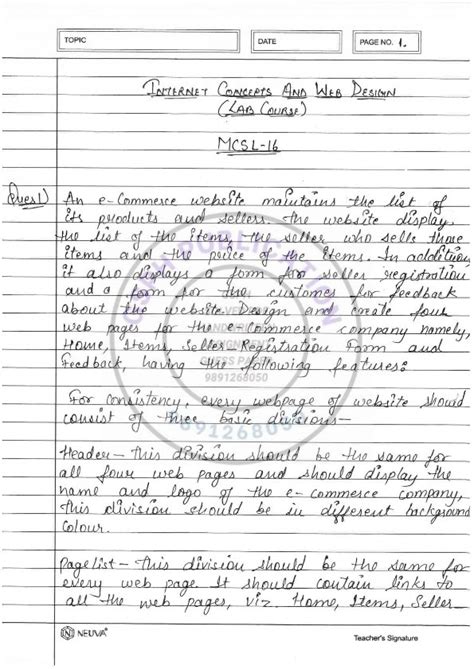 TOPIC
DATE
PAGE NO. 1.
INTERNET CONCEPTS AND WEB DESIGN
(LAB COURSE)
MCSL-16
Ques1) An e-Commerce website maintains the list of
its products and sellers. the website display
the list of the items, the seller who sells those
items and the price of the items. In addition
it also displays a form for seller registration
and a form for the customer for feedback
about the website. Design and create four
web pages for the e-Commerce company namely,
Home, Items, Seller Registration Form and
Feedback, having the following features:
9891268050
For consistency, every webpage of website should
consist of three basic divisions—
Header- this division should be the same for
all four web pages and should display the
name and logo of the e-commerce company,
this division should be in different background
Colour.
Pagelist- this division should be the same for
every web page. It should contain links to
all the web pages, viz. Home, Items, Seller-
NEUVA
Teacher's Signature